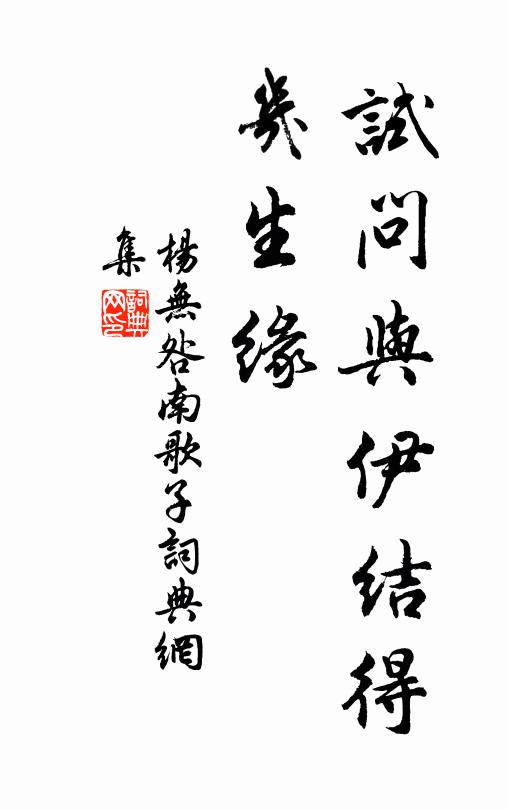 試問與伊結得
幾生緣
楊無咎南歌子詞典網
集
詞典網印